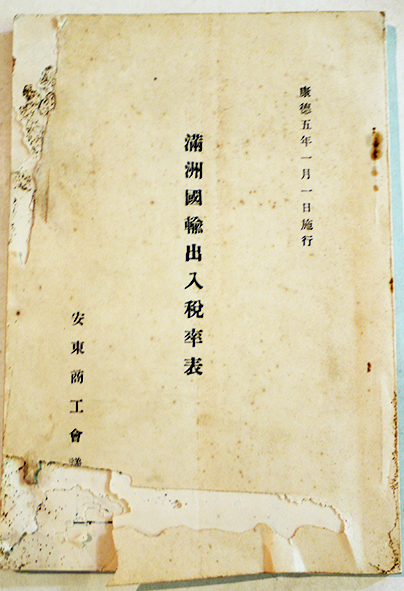 康德五年一月一日施行
滿洲國輸出入稅率表
安東商工會議